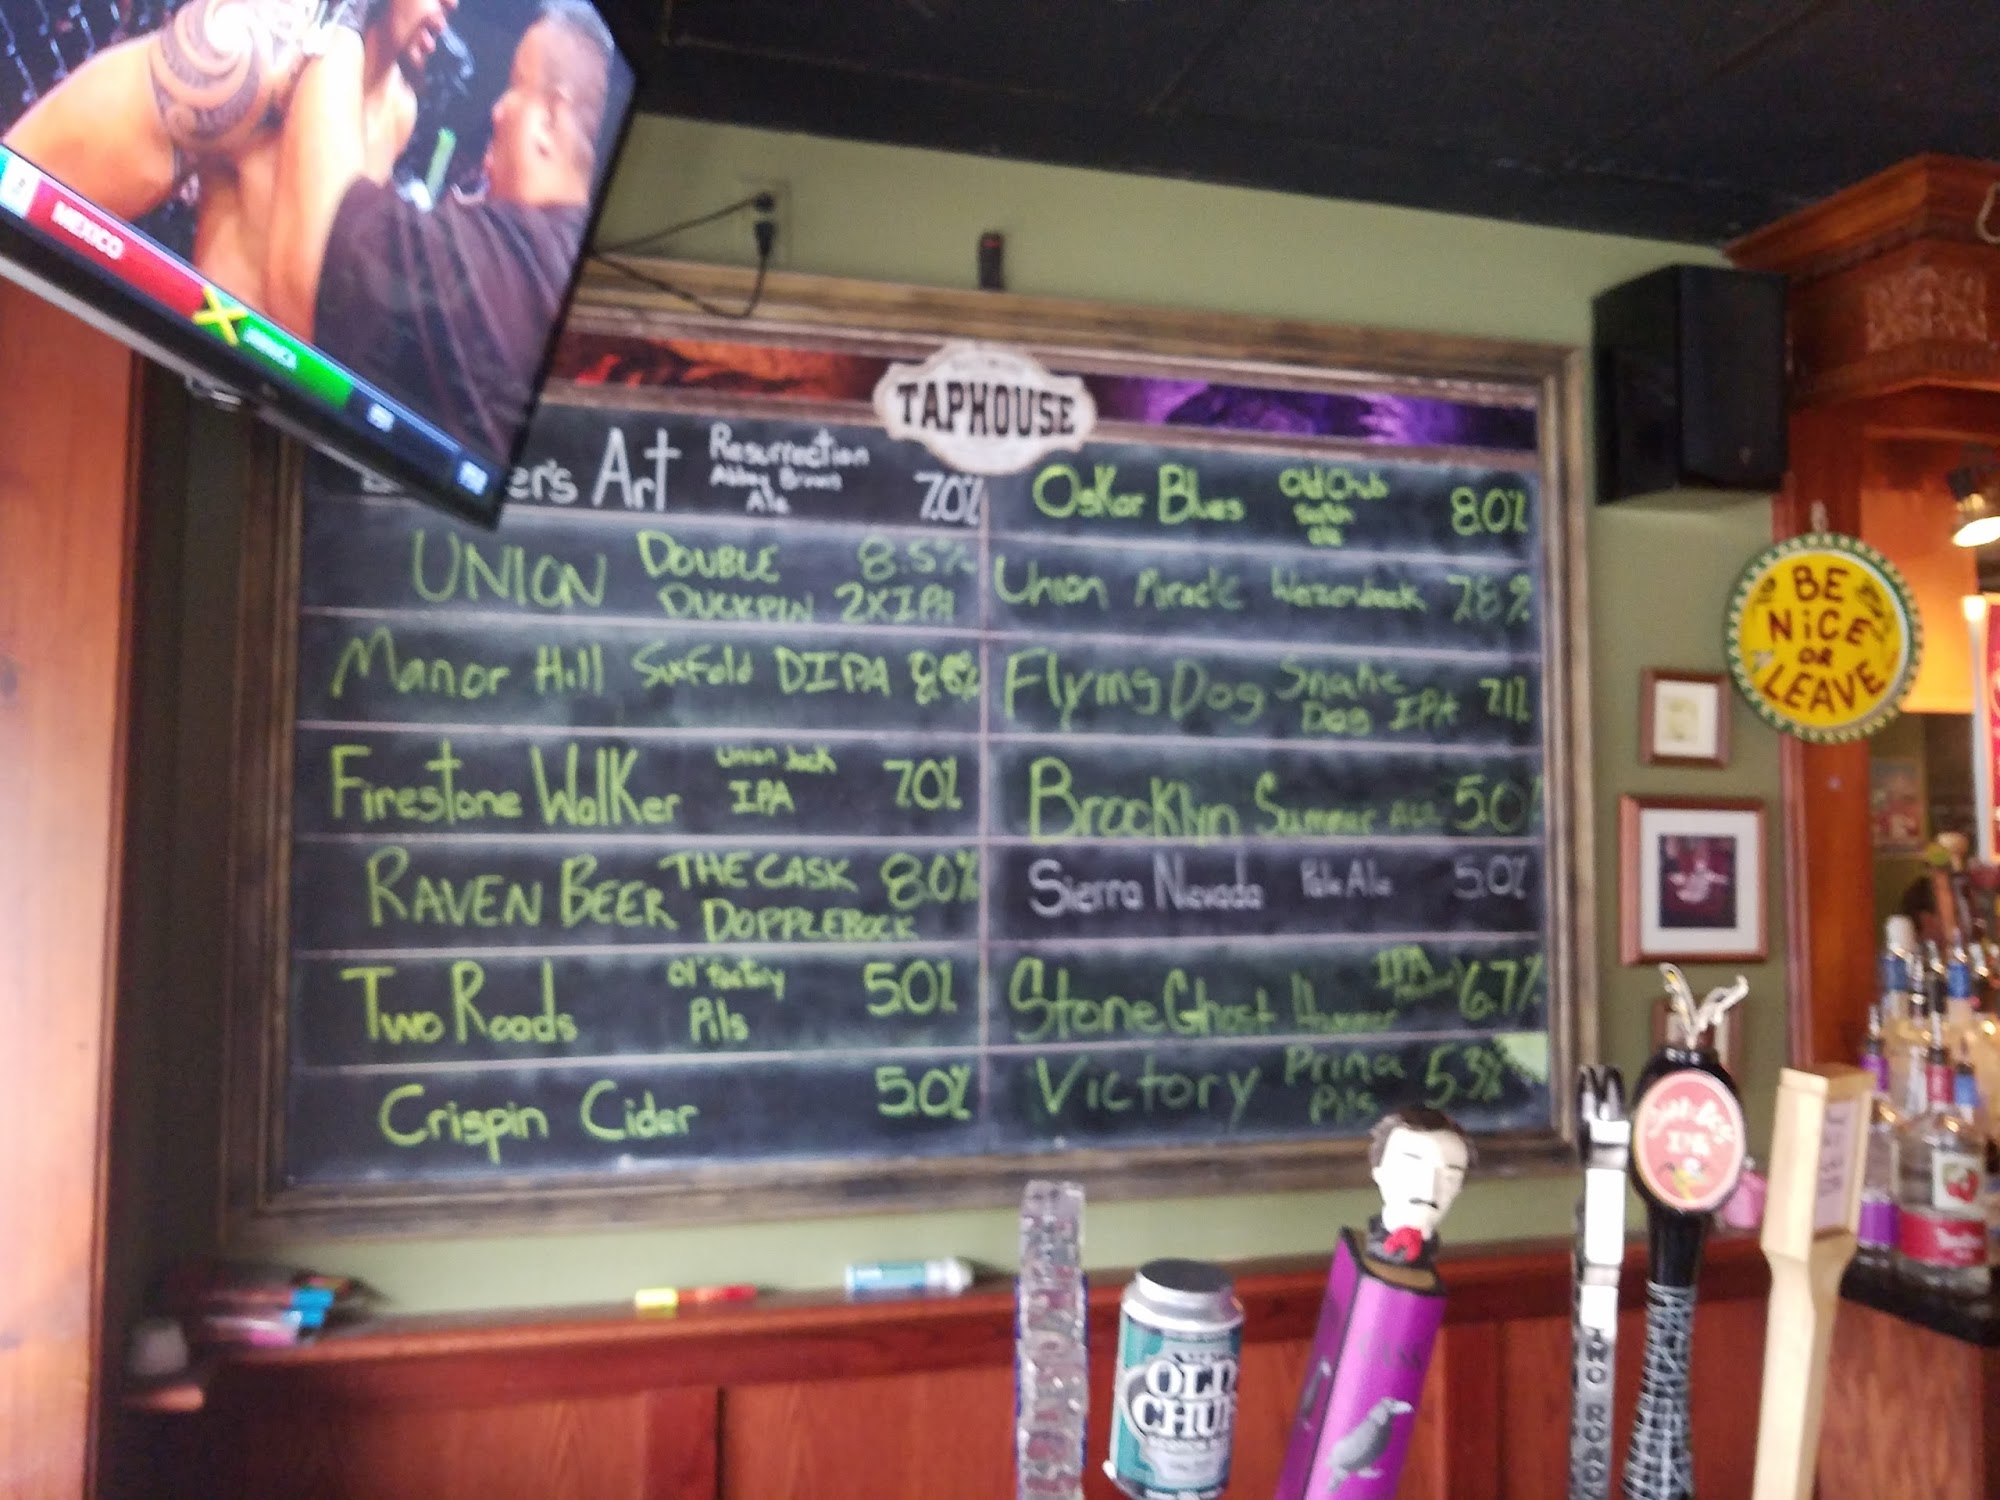 MEXICO
JAMAICA
TAPHOUSE
er's Art Resurrection 7.0%
Abbey Brown
Ale
UNION DOUBLE 8.5%
DUCKPIN 2XIPA
Manor Hill Sixfold DIPA
Firestone Walker Union Jack 7.0%
IPA
RAVEN BEER THE CASK 8.0%
DOPPLEBOCK
Two Roads Ol' Factory 5.0%
Pils
Crispin Cider 5.0%
Oskar Blues Old Chub 8.0%
ale
Union 7.8%
Flying Dog Snake 7.1%
Dog IPA
Brooklyn Summer ALE 5.0%
Sierra Nevada Pale Ale 5.0%
Stone Ghost Hammer IPA 6.7%
Victory Prima 5.3%
Pils
BE
NiCE
OR
LEAVE
OLD
CHU
IPA